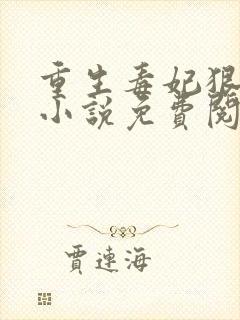 重生毒妃狠
小說免費閱
賈連海